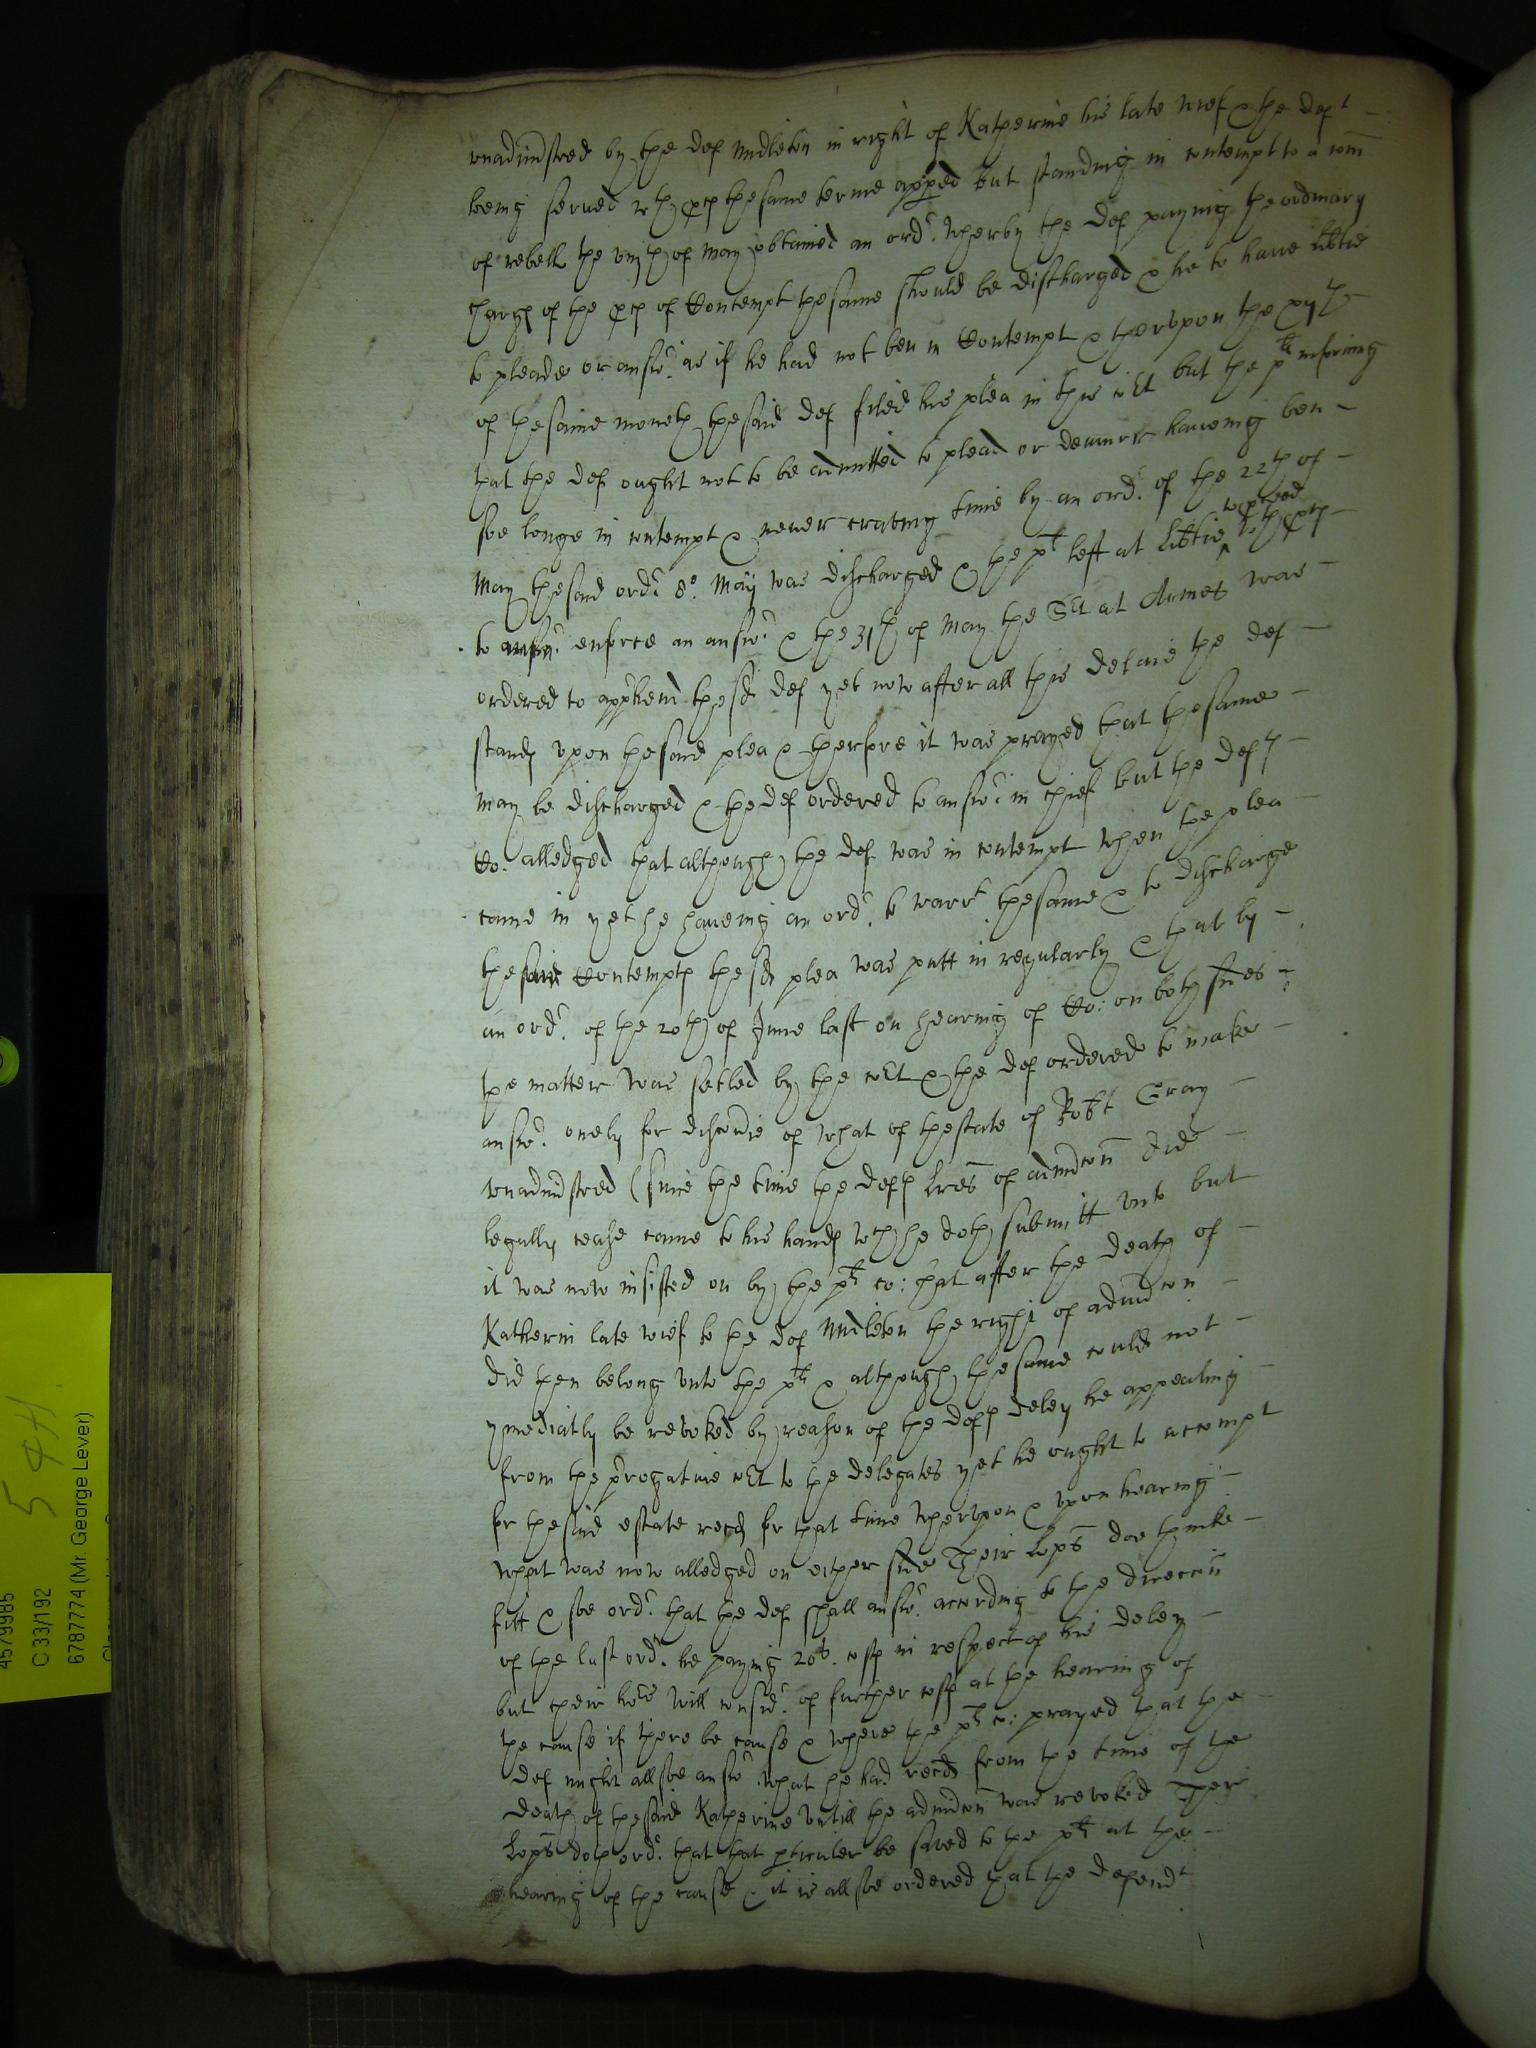 unadmistred by the def Midleton in right of Katherine his late wief & the deft
being served wth ꝓces the same terme appeed but standing in contempt to a com̃
of rebell the viijth of May obtained an ordr. wherby the def paying the ordinary
charges of the ꝓces of Contempt the same should be discharged & he to have libtie
to pleade or answr. as if he had not ben in Contempt & therupon the xijth
of the same moneth the said def filed his plea in this cort but the plt informing
that the def ought not to be admitted to plead or demurr haveing ben
soe longe in contempt & never craving time by an ordr. of the 22th of
May the said ordr 8o. Maij was discharged & the plt left at libtie to pceed wth ꝓces
to enforce an answr. & the 31th of May the Srt at Armes was
ordered to apprhend the sd def yet now after all this delaie the def
stands upon the said plea & therfore it was prayed that the same
may be discharged & the def ordered to answr. in chief but the defts
Co. alledged that although the def was in contempt when the plea
came in yet he haveing an ordr. to warrt the same & to discharge
the said Contempts the sd plea was putt in regularly & that by
an ordr. of the 20th of June last on hearing of Co: on both sides
the matter was setled by the cort & the def ordered to make
answr. onely for discovie of what of the state of Robt Gray
unadmistred (since the time the defts lres of admicon did
legally cease came to his hands wch he doth submitt unto but
it was now insisted on by the plts co: that after the death of
Katherin late wief to the def Midleton the right of admicon
did then belong unto the plt & although the same could not
ymediatly be revoked by reason of the defts deley he appealing
from the prrogative cort to the delegates yet he ought to accompt
for the said estate recd for that time wherupon & upon hearing
what was now alledged on either side Their Lops doe thinke
fitt & soe ordr. that the def shall answr. according to the direccon
of the last ordr. he paying 20s. costs in respect of his deley
but their hors will considr. of further costs at the hearing of
the cause if there be cause & where the plts co: prayed that the
def might allsoe answr. what he had recd from the time of the
death of the said Katherine untill the admicon was revoked Their
Lops doth ordr. that that pticuler be saved to the plt at the
hearing of the cause & it is allsoe ordered that the defendt
4579985
C 33/192
6787774 (Mr. George Lever)